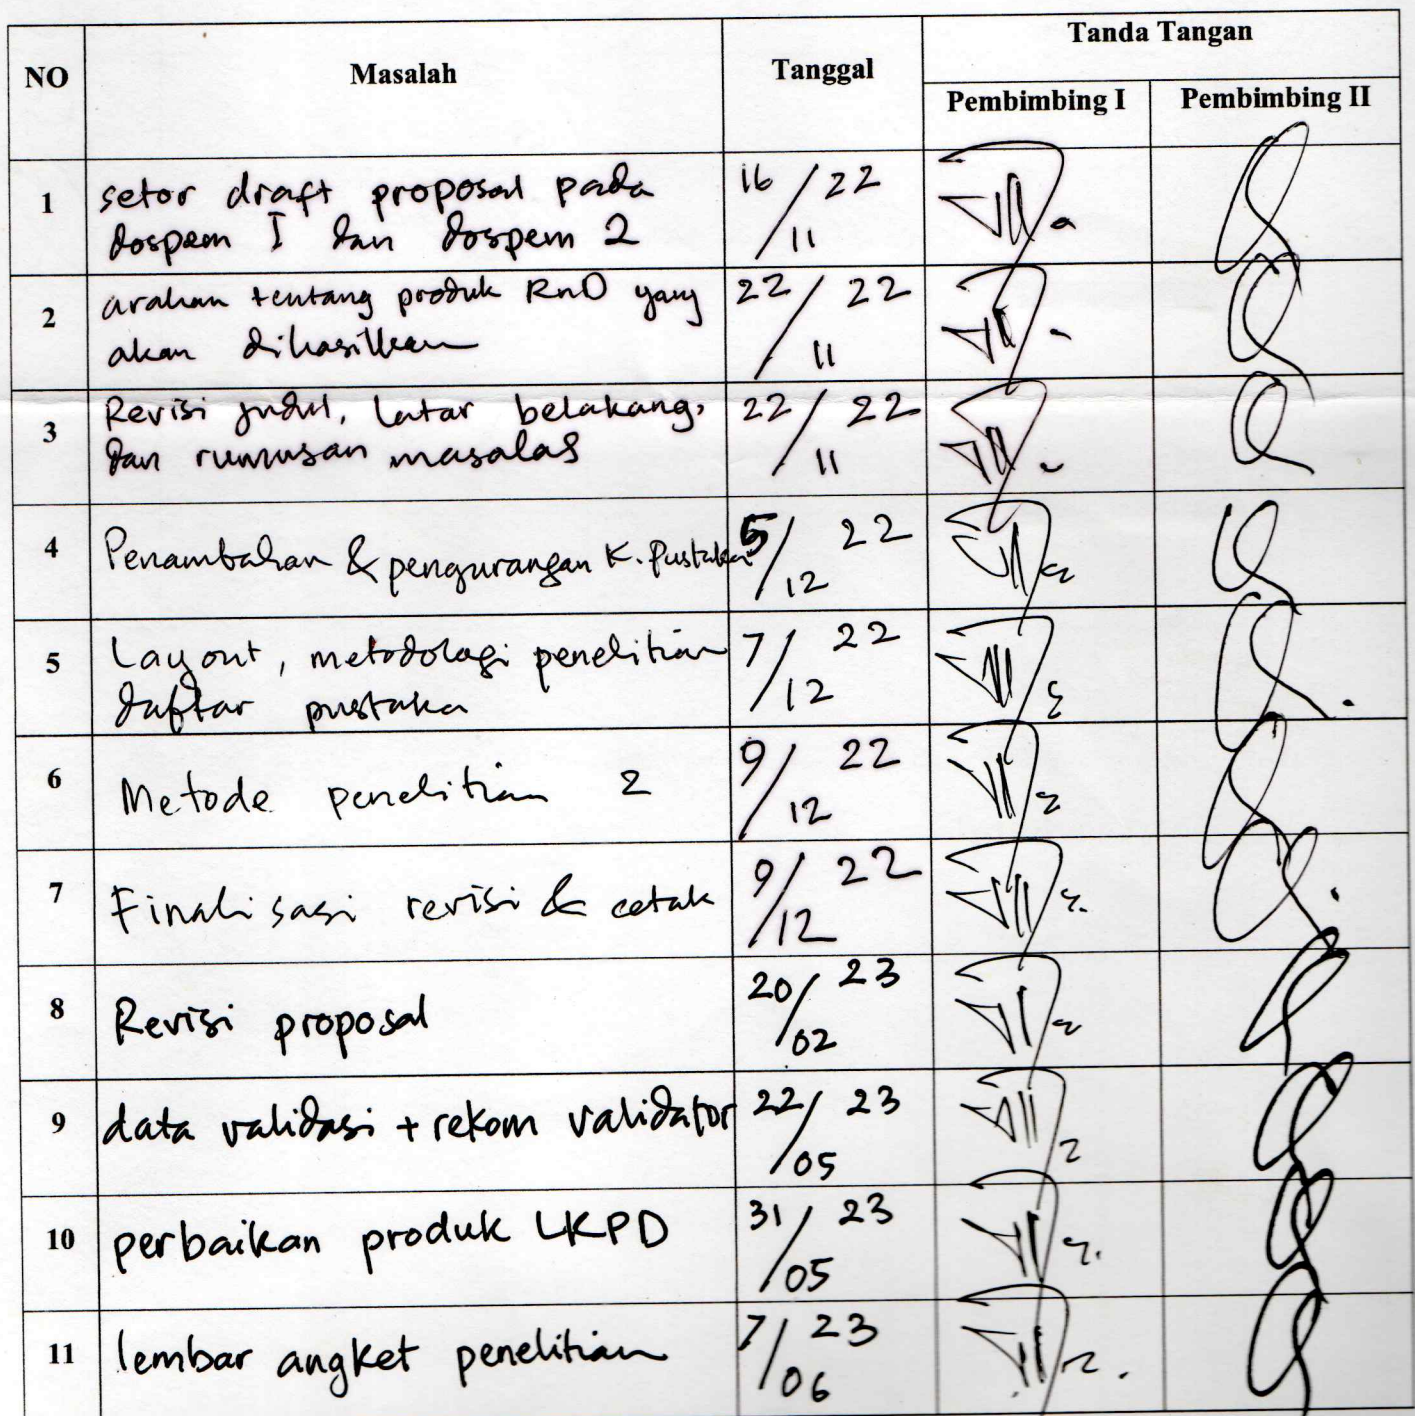 NO Masalah Tanggal Tanda Tangan
Pembimbing I Pembimbing II
1 setor draft proposal pada 16/11 22
dospem I dan dospem 2
2 arahan tentang produk RnD yang 22/11 22
akan dihasilkan
3 Revisi judul, latar belakang, 22/11 22
dan rumusan masalas
4 Penambahan & pengurangan K. Pustaka 5/12 22
5 Layout, metodologi penelitian 7/12 22
daftar pustaka
6 Metode penelitian 2 9/12 22
7 Finalisasi revisi & cetak 9/12 22
8 Revisi proposal 20/02 23
9 data validasi + rekom validator 22/05 23
10 perbaikan produk LKPD 31/05 23
11 lembar angket penelitian 7/06 23